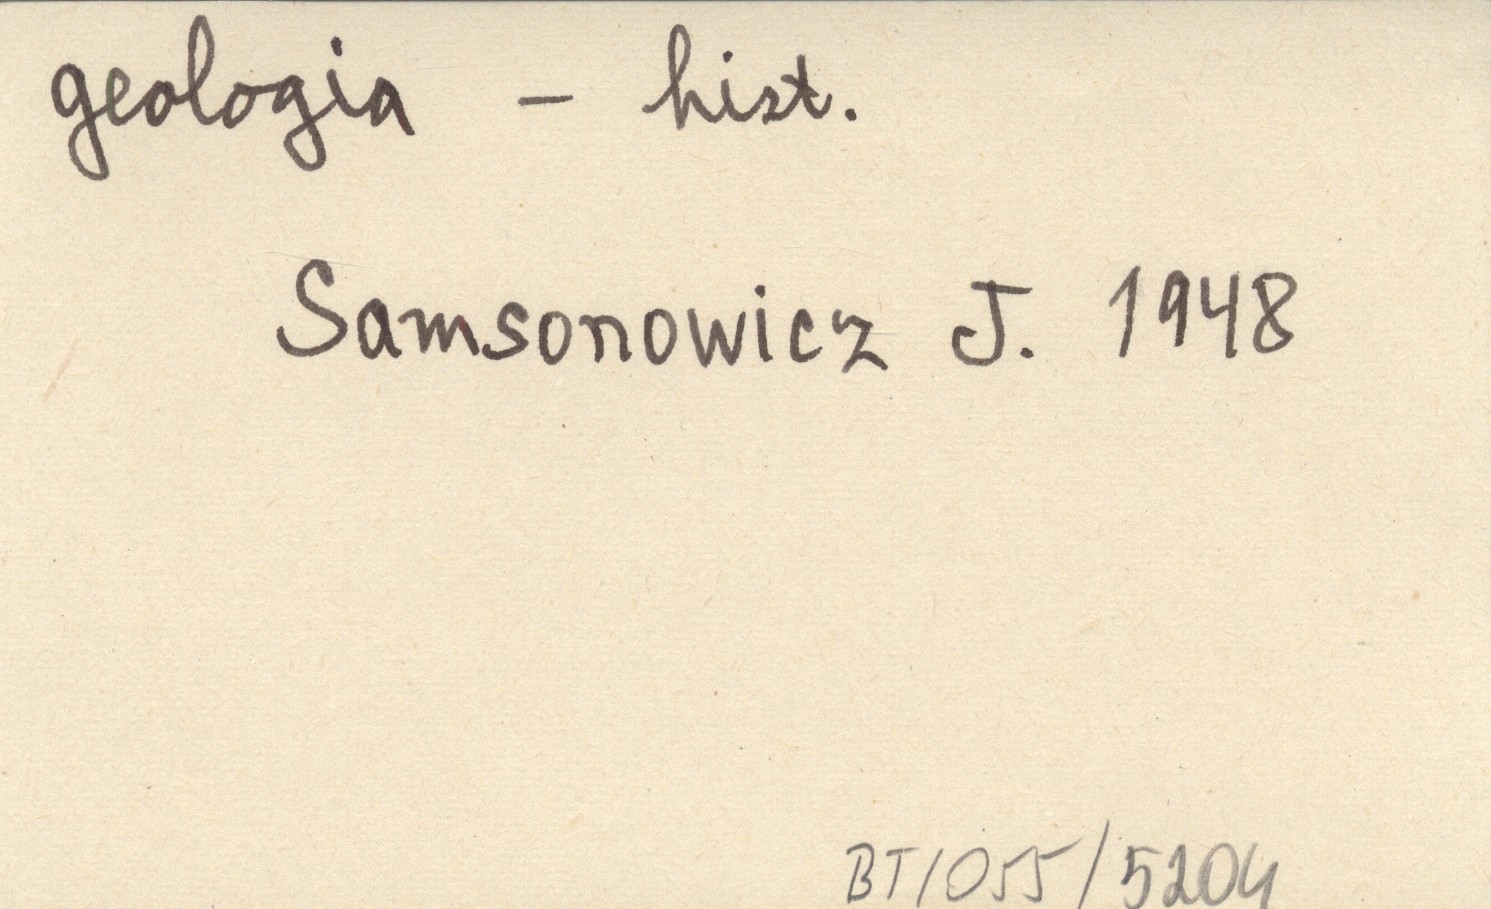 geologia – hist.
Samsonowicz J. 1948
BT/055/5204